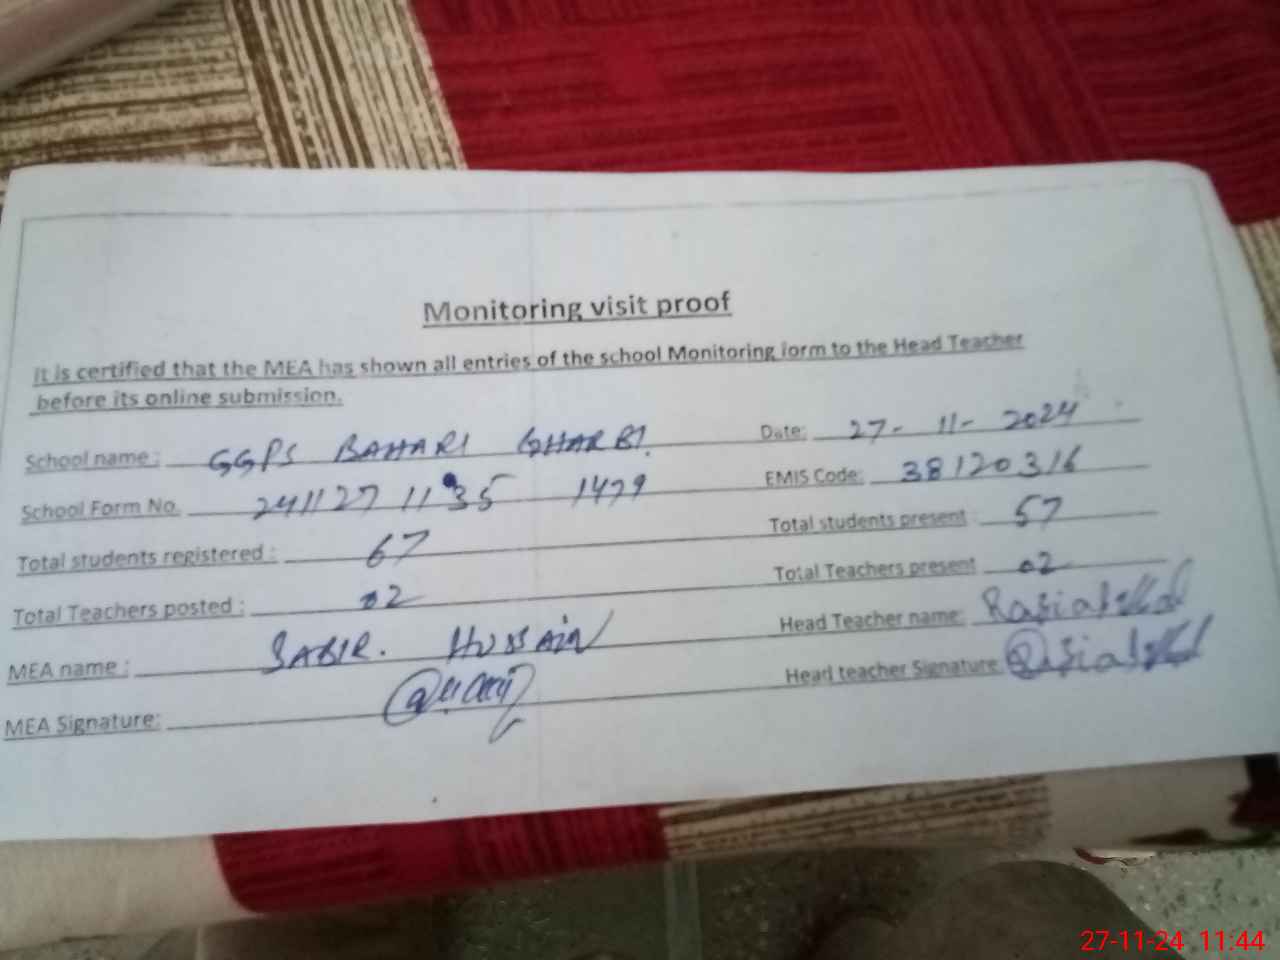 Monitoring visit proof
It is certified that the MEA has shown all entries of the school Monitoring form to the Head Teacher
before its online submission.
School name : GGPS BAHARI GHARBI. Date: 27-11-2024
School Form No. 241127 1135 1479 EMIS Code: 38120316
Total students registered : 67 Total students present : 57
Total Teachers posted : 02 Total Teachers present 02
MEA name : SABIR. HUSSAIN Head Teacher name:
MEA Signature: Head teacher Signature
27-11-24 11:44